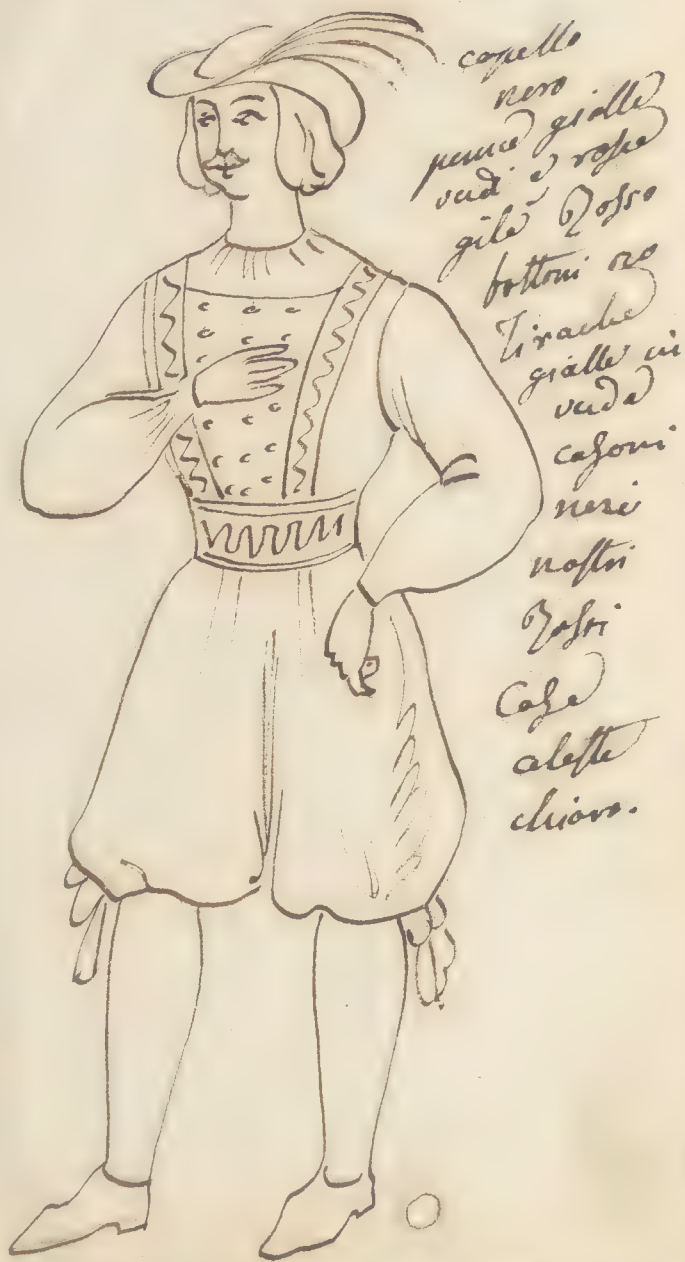 capello
nero
penne gialle
verdi e rosse
gilè Rosso
bottoni oro
Tirache
gialle in
verde
calzoni
neri
nastri
Rossi
Calze
celeste
chiaro.